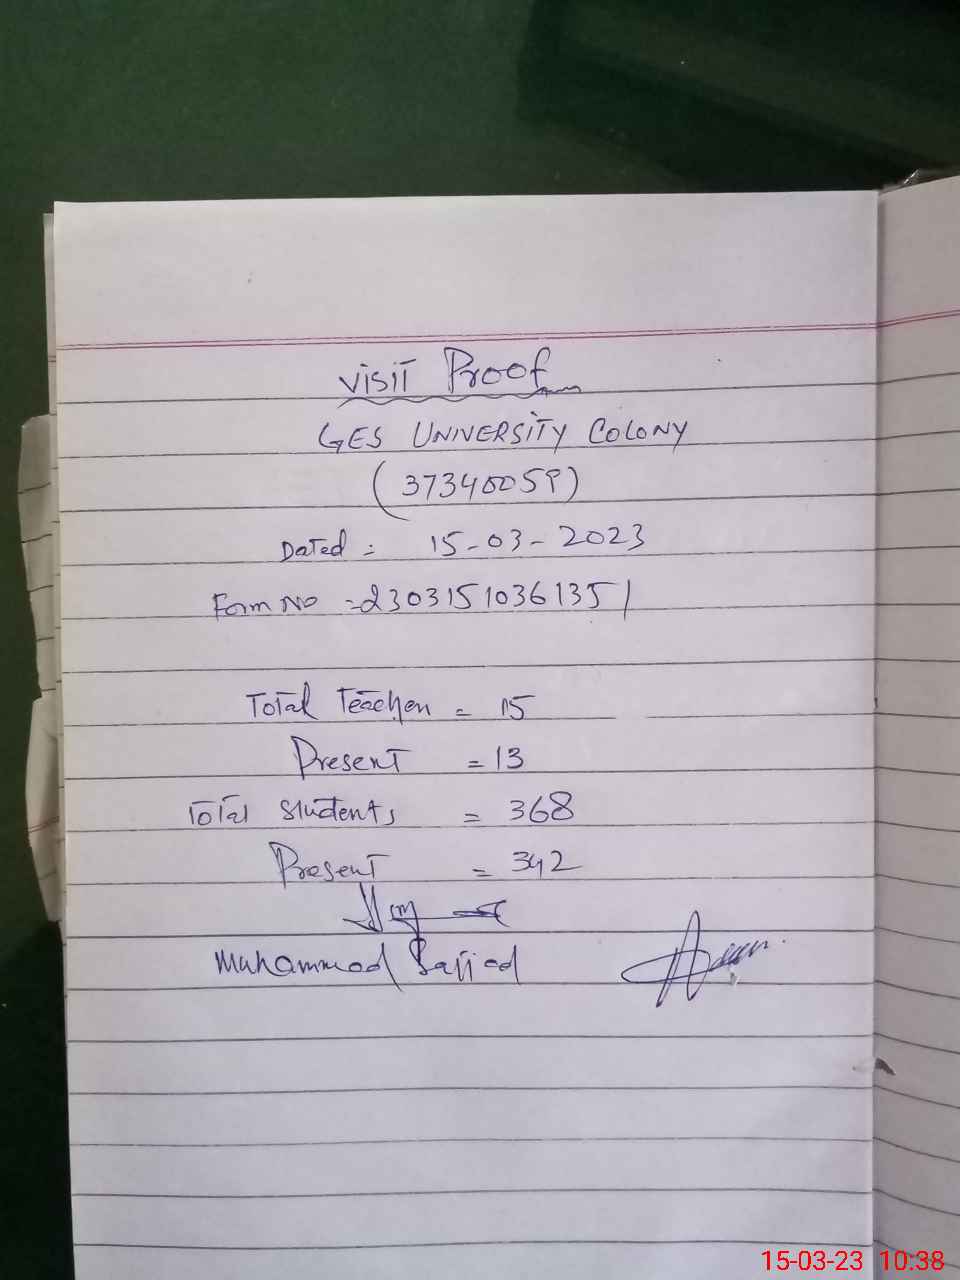 Visit Proof
GES UNIVERSITY COLONY
(37340059)
Dated = 15-03-2023
Form No = 23031510361351
Total Teachers = 15
Present = 13
Total Students = 368
Present = 342
Muhammad Sajjad
15-03-23 10:38